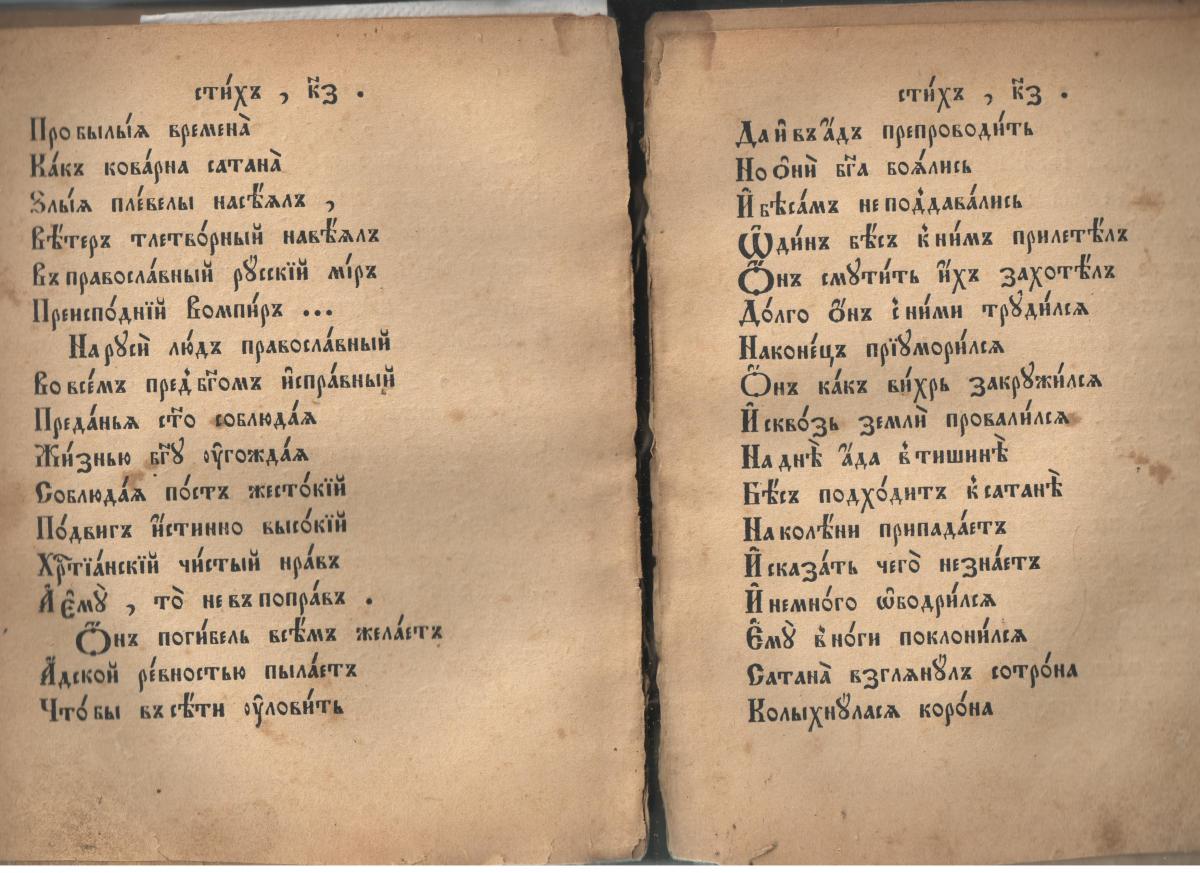 сти́хъ , к҃з .
Про былы́ѧ времена̀
Ка́къ кова́рна сатана̀
Ѕлы́ѧ пле́велы насѣ́ѧлъ ,
Вѣ́теръ тлетво́рный навѣ́ѧлъ
Въ правосла́вный рꙋ́сскїй мі́ръ
Преиспо́днїй Вомпи́ръ ...
На рꙋси̇̀ лю́дъ правосла́вный
Во все́мъ пред̾ бг҃омъ и҆спра́вный
Преда́ньѧ ст҃о соблюда́ѧ
Жи́знью бг҃ꙋ ᲂу҆гожда́ѧ
Соблюда́ѧ по́стъ жесто́кїй
По́двигъ и҆́стинно высо́кїй
Хрⷭ҇тїа́нскїй чи́стый нра́въ
А҆ є҆мꙋ̀ , то̀ не въ попра́въ .
Ѻ҆́нъ поги́бель всѣ́мъ жела́етъ
А҆́дской ре́вностью пыла́етъ
Что́ бы въ сѣ́ти ᲂу҆лови́ть
сти́хъ , к҃з .
Да и҆ въ а҆́дъ препроводи́ть
Но ѻ҆ни̇̀ бг҃а боѧ́лись
И҆ бѣса́мъ не под̾дава́лись
Ѡ҆ди́нъ бѣ́съ к̾ ни́мъ прилетѣ́лъ
Ѻ҆́нъ смꙋти́ть и҆́хъ захотѣ́лъ
До́лго ѻ҆́нъ с̾ ни́ми трꙋди́лсѧ
Наконе́цъ прїꙋмори́лсѧ
Ѻ҆́нъ ка́къ ви́хрь закрꙋжи́лсѧ
И҆ сквóзь земли̇̀ провали́лсѧ
На днѣ̀ а҆́да в̾ тишинѣ̀
Бѣ́съ подхо́дитъ к̾ сатанѣ̀
На колѣ́ни припада́етъ
И҆ сказа́ть чего̀ незна́етъ
И҆ немно́го ѡ҆бодри́лсѧ
Є҆мꙋ̀ в̾ но́ги поклони́лсѧ
Сатана̀ взглѧнꙋ́лъ сотро́на
Колыхнꙋ́ласѧ коро́на